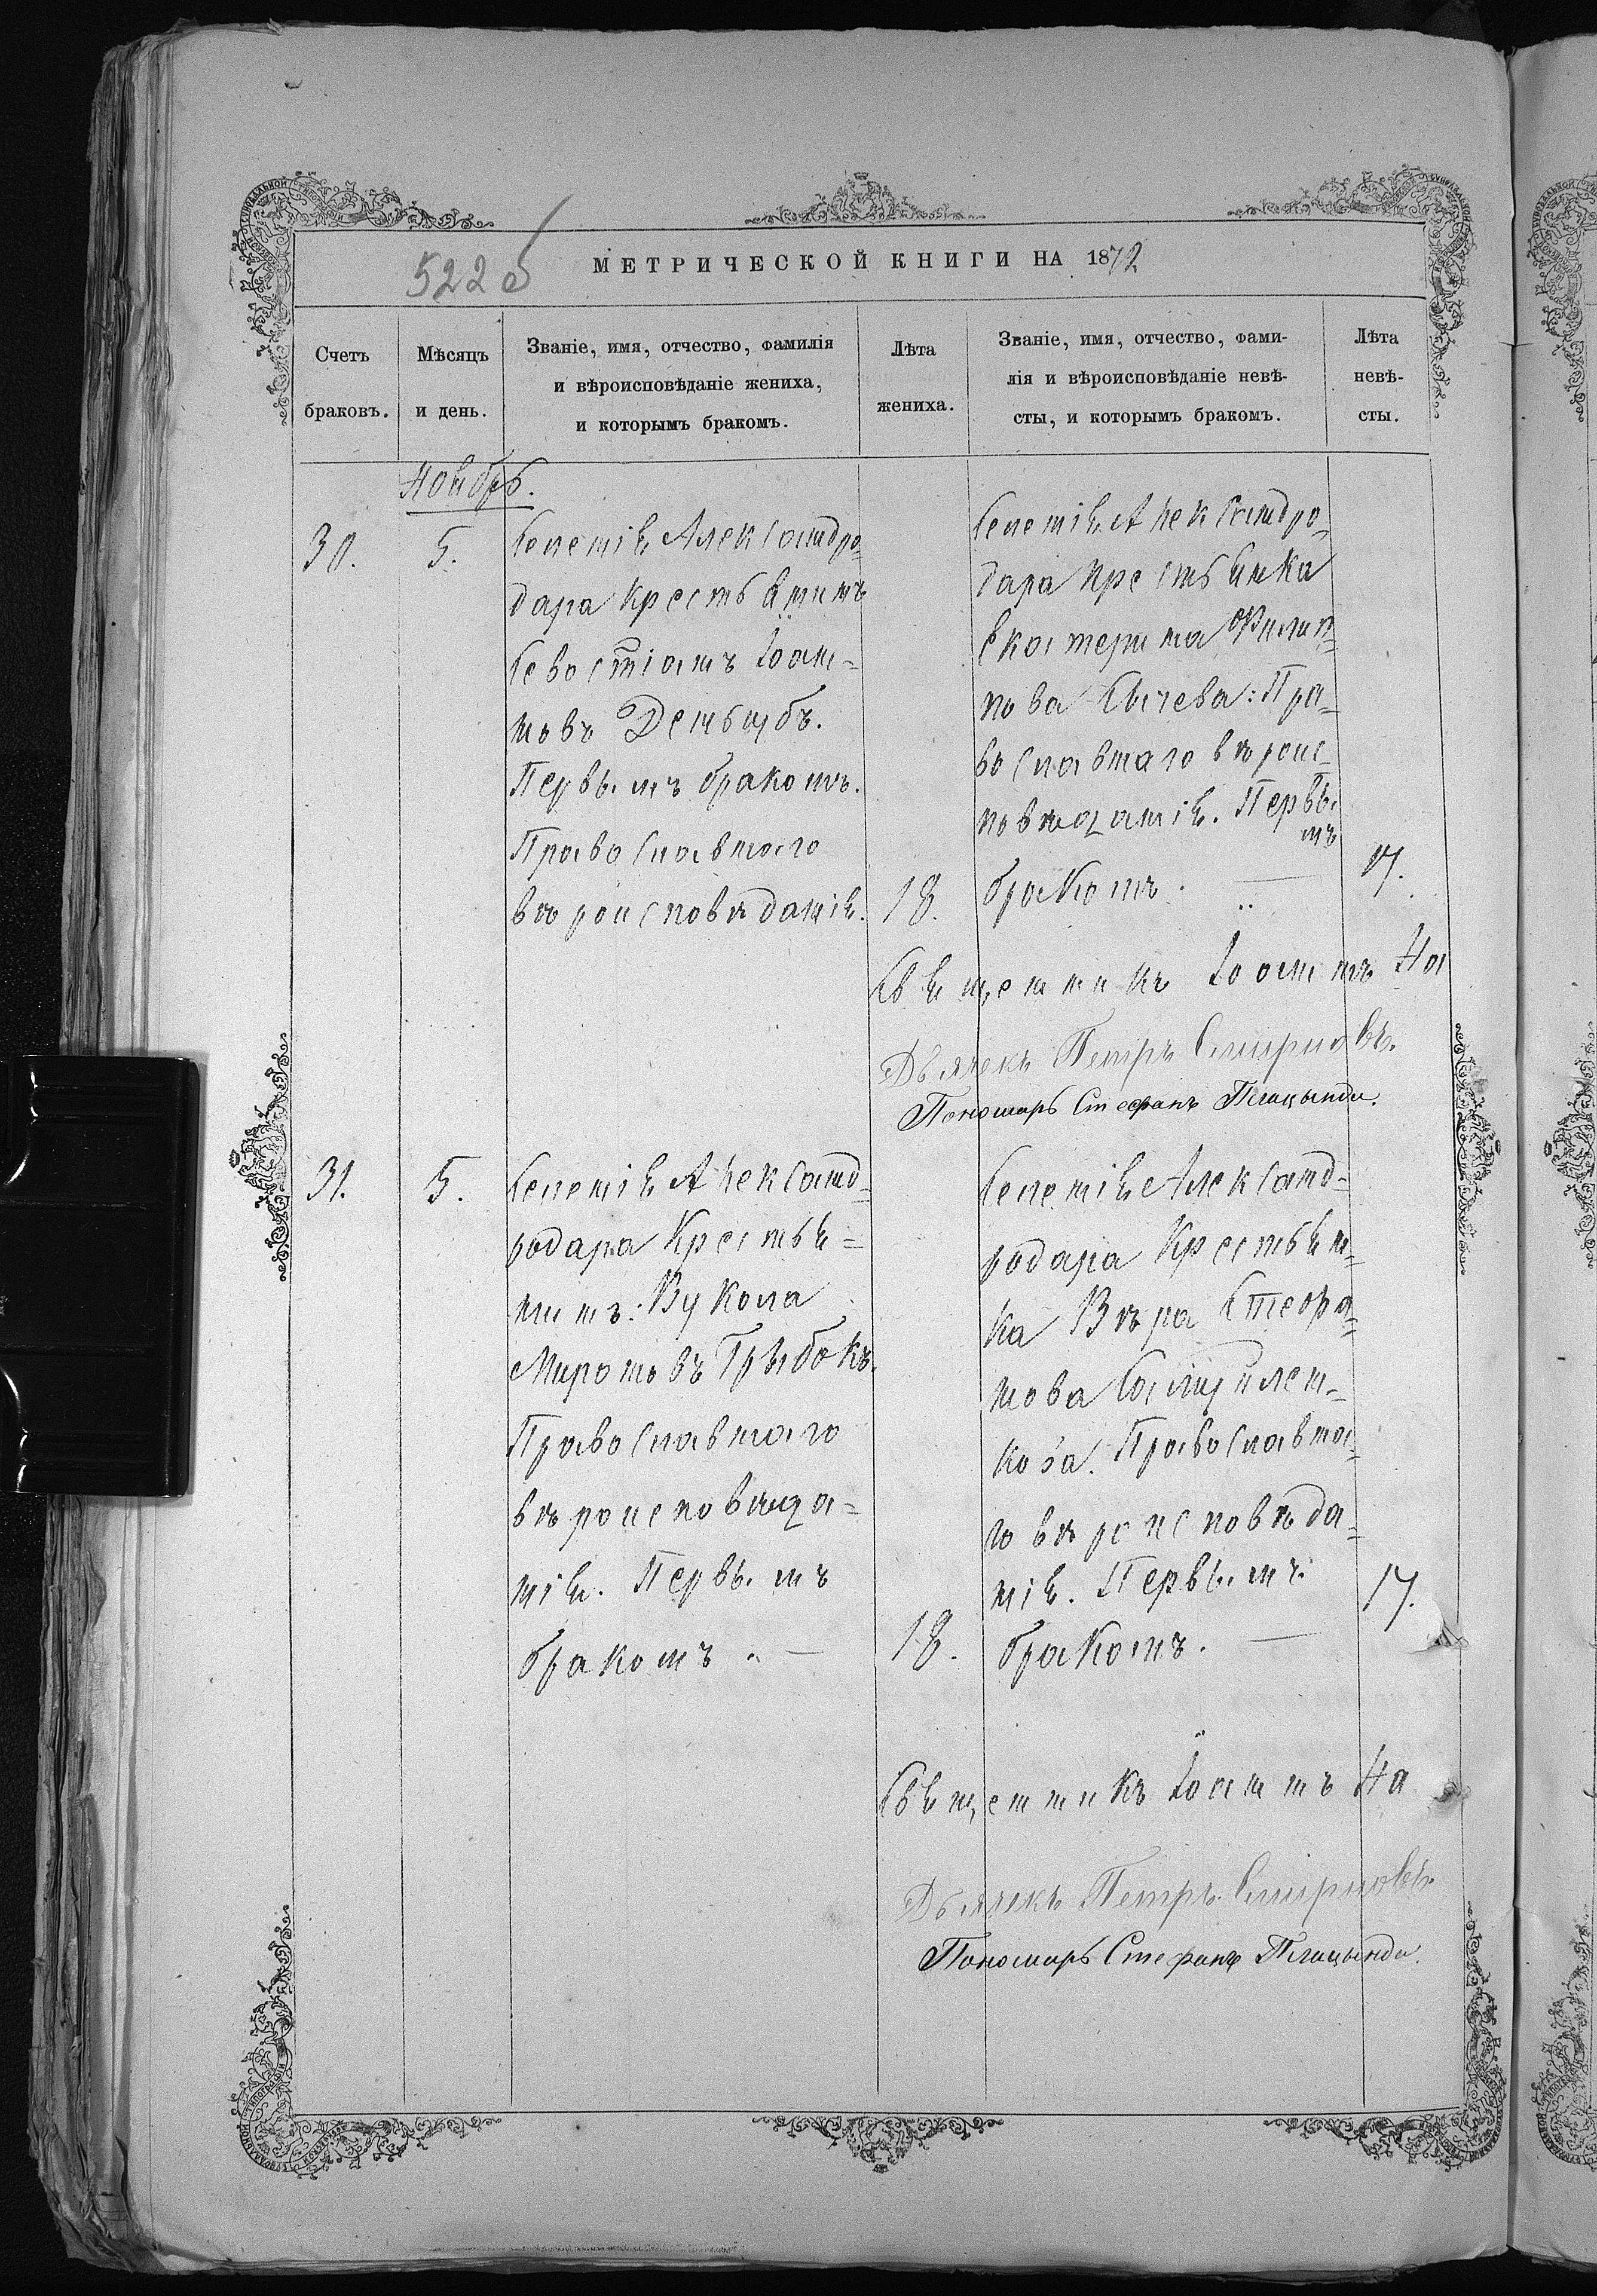 522 об
МЕТРИЧЕСКОЙ КНИГИ НА 1872
Счетъ браковъ.
Мѣсяцъ и день.
Званіе, имя, отчество, фамилія
и вѣроисповѣданіе жениха,
и которымъ бракомъ.
Лѣта
жениха.
Званіе, имя, отчество, фами-
лія и вѣроисповѣданіе невѣ-
сты, и которымъ бракомъ.
Лѣта
невѣ-
сты.
Ноябрь.
30.
5.
Селенія Александро-
дара крестьянинъ
Севостіанъ Іоан-
новъ
Первымъ бракомъ.
Православнаго
вѣроисповѣданія.
18.
Селенія Александро-
дара крестьянка
Екатерина Филип-
пова Сычева: Пра-
вославнаго вѣроис-
повѣданія. Первы
мъ
бракомъ.
17.
Священникъ Іоаннъ На
Дьячекъ Петръ Смирновъ.
Пономарь Стефанъ Плацында.
31.
5.
Селенія Александ-
родара Крестья-
нинъ: Вукола
Мироновъ Грыбокъ.
Православнаго
вѣроисповѣда-
нія. Первымъ
бракомъ. —
18.
Селенія Александ-
родара Крестьян-
ка Вѣра Стефа-
нова
Православна-
го вѣроисповѣда-
нія. Первымъ
бракомъ. —
17.
Священникъ Іоаннъ На
Дьячекъ Петръ Смирновъ
Пономарь Стефанъ Плацында.